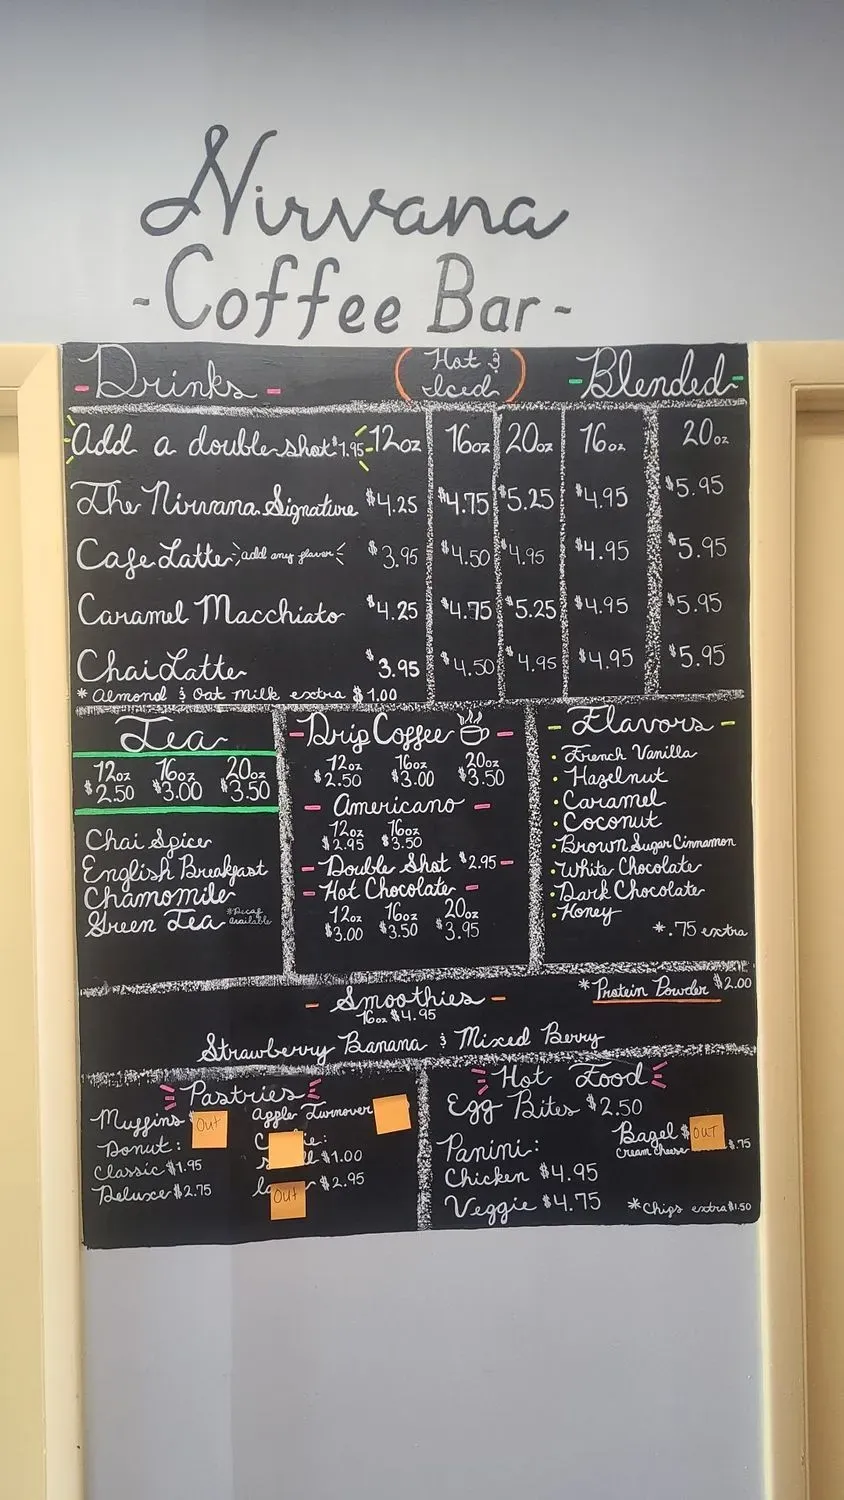 Nirvana
-Coffee Bar-
Drinks
Hot &
Iced
Blended
Add a double shot $1.95 12oz 16oz 20oz 16oz 20oz
The Nirvana Signature $4.25 $4.75 $5.25 $4.95 $5.95
Cafe Latte add any flavor $3.95 $4.50 $4.95 $4.95 $5.95
Caramel Macchiato $4.25 $4.75 $5.25 $4.95 $5.95
Chai Latte $3.95 $4.50 $4.95 $4.95 $5.95
* Almond & Oat milk extra $1.00
Tea
12oz 16oz 20oz
$2.50 $3.00 $3.50
Chai Spice
English Breakfast
Chamomile
Green Tea *Decaf available
- Drip Coffee -
12oz 16oz 20oz
$2.50 $3.00 $3.50
- Americano -
12oz 16oz
$2.95 $3.50
- Double Shot $2.95 -
- Hot Chocolate -
12oz 16oz 20oz
$3.00 $3.50 $3.95
- Flavors -
· French Vanilla
· Hazelnut
· Caramel
· Coconut
· Brown Sugar Cinnamon
· White Chocolate
· Dark Chocolate
· Honey
*.75 extra
- Smoothies -
16oz $4.95
* Protein Powder $2.00
Strawberry Banana & Mixed Berry
Pastries
Muffins Out
Donut:
Classic $1.95
Deluxe $2.75
Apple Turnover
$1.00
Out $2.95
Hot Food
Egg Bites $2.50
Panini:
Chicken $4.95
Veggie $4.75
Bagel $ OUT
Cream cheese $.75
*Chips extra $1.50